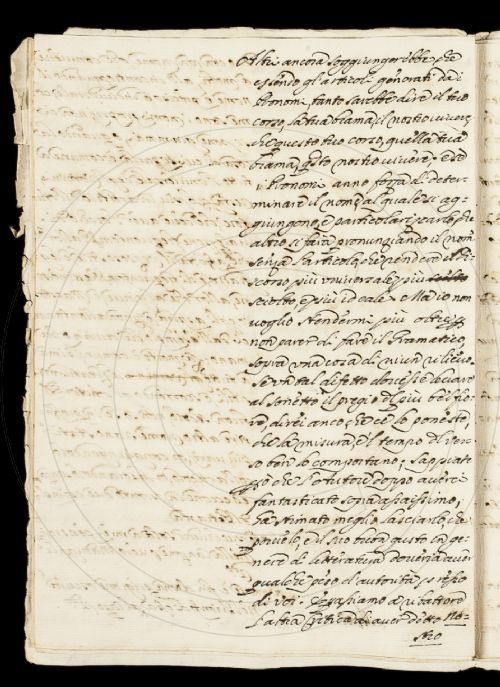 Altri ancora soggiungerebbe che
essendo gl'articoli generati dai
Pronomi, tanto sarebbe dire il tuo
corso, la tua brama, il nostro vivere,
che questo tuo corso, quella tua
brama, questo nostro vivere, e se
i Pronomi anno forza di deter-
minare il nome, al quale si ag-
giungono, e particolarizzarlo, che
altro si farà pronunziando il nome
senza l'articolo, che rendere il Di-
scorso più universale, più
sciolto, e più ideale. Ma io non
voglio stendermi più oltre per
non parer di fare il Gramatico,
sopra una cosa di niun rilievo.
Se un tal difetto dovesse levare
al sonetto il pregio di più bel fio-
re, direi anco, che ce lo poneste,
che la misura, e 'l tempo di ver-
so ben lo comportano; sappiate
però che l'Autore doppo avere
fantasticato sopra assaissimo,
ha stimato meglio lasciarlo, che
porvelo, e il suo buon gusto in ge-
nere di letteratura doveria aver
qualche peso d'autorità
di voi. Passiamo a ribattere
l'altra Critica di aver detto no-
stro